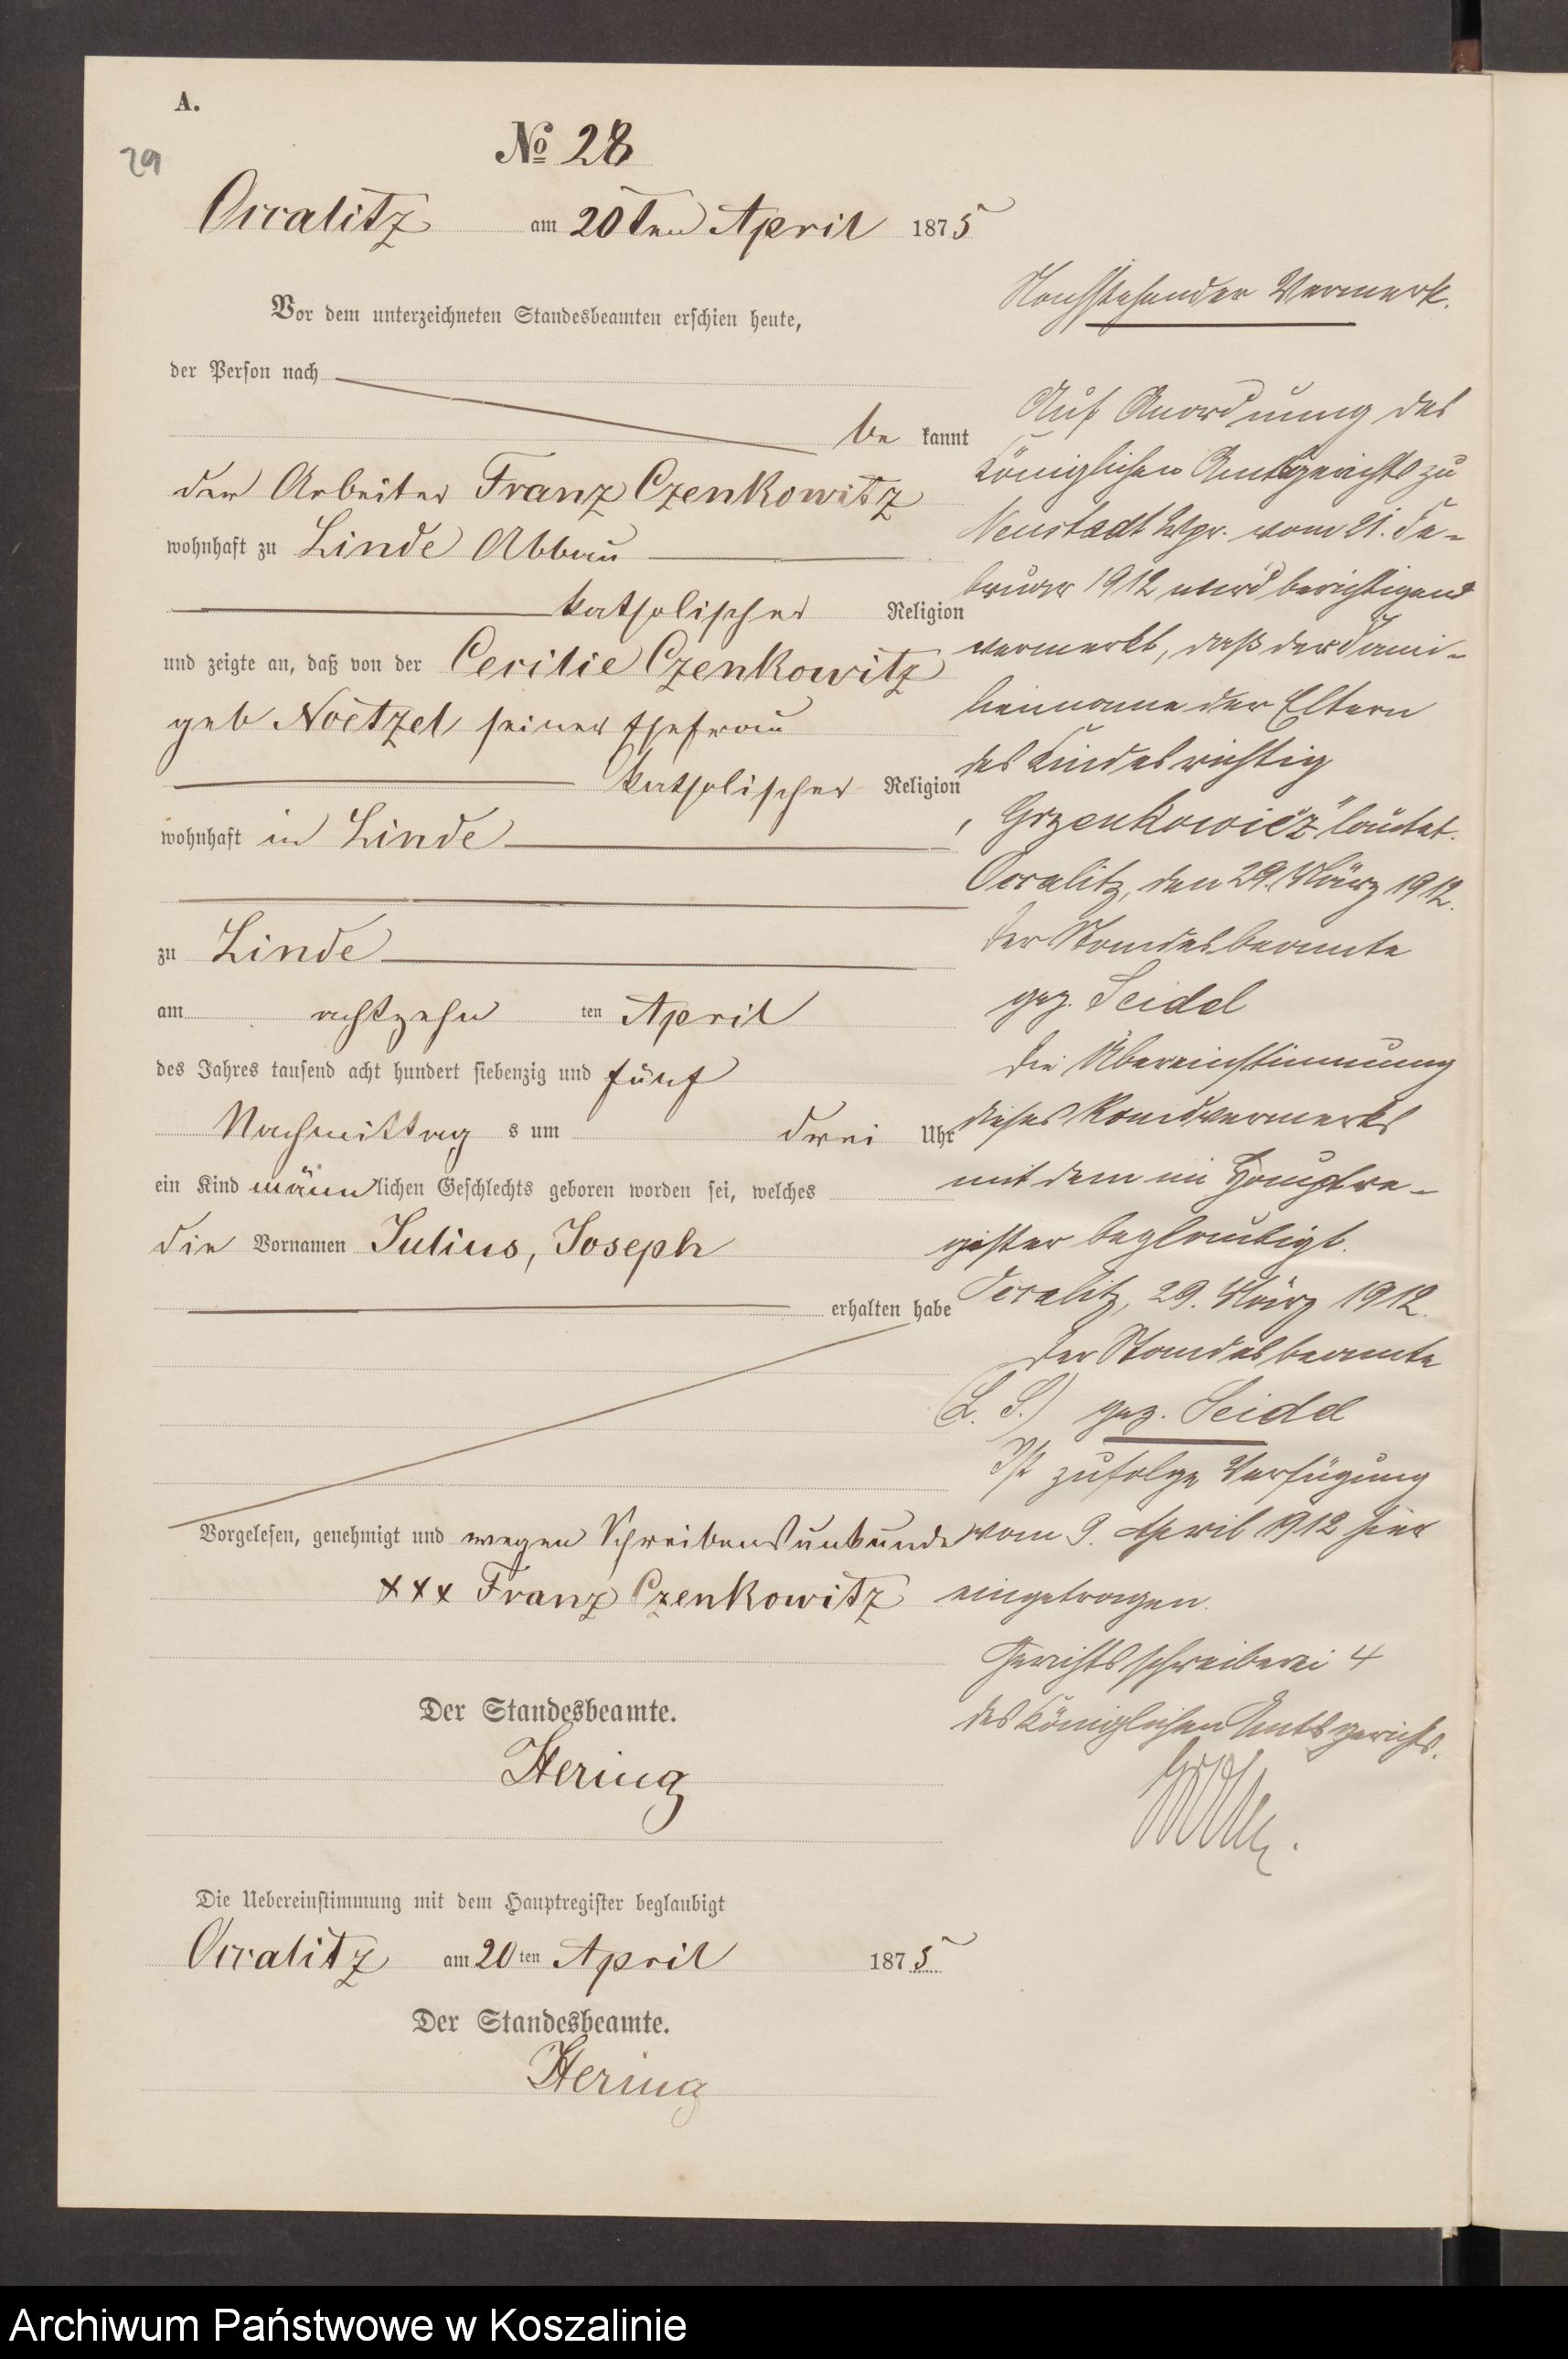 A.
29
№ 28
Occalitz am 20ten April 1875
Vor dem unterzeichneten Standesbeamten erschien heute,
der Person nach
be kannt
der Arbeiter Franz Czenkowitz
wohnhaft zu Linde Abbau
katholischer Religion
und zeigte an, daß von der Cecilie Czenkowitz
geb Noetzel seiner Ehefrau
katholischer Religion
wohnhaft in Linde
zu Linde
am achtzehn ten April
des Jahres tausend acht hundert siebenzig und fünf
Nachmittag s um drei Uhr
ein Kind männlichen Geschlechts geboren worden sei, welches
die Vornamen Julius, Joseph
erhalten habe
Vorgelesen, genehmigt und wegen Schreibensunkunde
xxx Franz Czenkowitz
Der Standesbeamte.
Hering
Die Uebereinstimmung mit dem Hauptregister beglaubigt
Occalitz am 20ten April 1875
Der Standesbeamte.
Hering
Nachstehender Vermerk.
Auf Anordnung des
Königlichen Amtsgerichts zu
Neustadt Wpr. vom 21. Fe-
bruar 1912 wird berichtigend
vermerkt, daß der Fami-
lienname der Eltern
des Kindes richtig
„Grzenkowicz" lautet.
Occalitz, den 29. März 1912.
Der Standesbeamte
gez. Seidel
Die Übereinstimmung
dieses Randvermerks
mit dem im Hauptre-
gister beglaubigt.
Occalitz, 29. März 1912.
Der Standesbeamte
(L. S.) gez. Seidel
Ist zufolge Verfügung
vom 9. April 1912 hier
eingetragen.
Gerichtsschreiberei 4
des Königlichen Amtsgerichts.
Archiwum Państwowe w Koszalinie